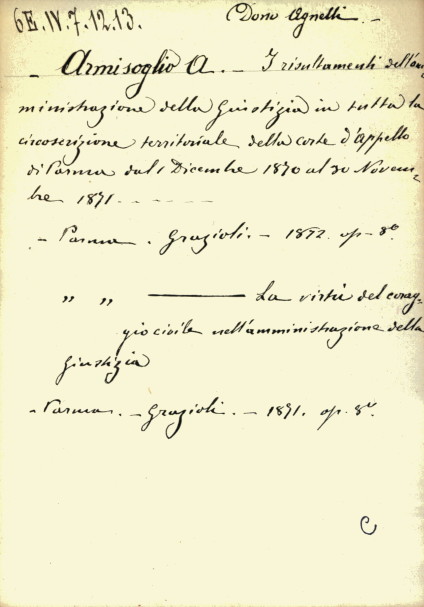 6E.IV.7.12.13. Dono Agnelli. -
- Armisoglio A. - I risultamenti dell'am-
ministrazione della Giustizia in tutta la
circoscrizione territoriale della corte d'Appello
di Parma dal 1 Dicembre 1870 al 30 Novem-
bre 1871. - - - - -
- Parma. Grazioli. - 1872. op - 8º
" " ——— La virtù del corag-
gio civile nell'amministrazione della
Giustizia
- Parma. - Grazioli. - 1871. op. 8º.
C